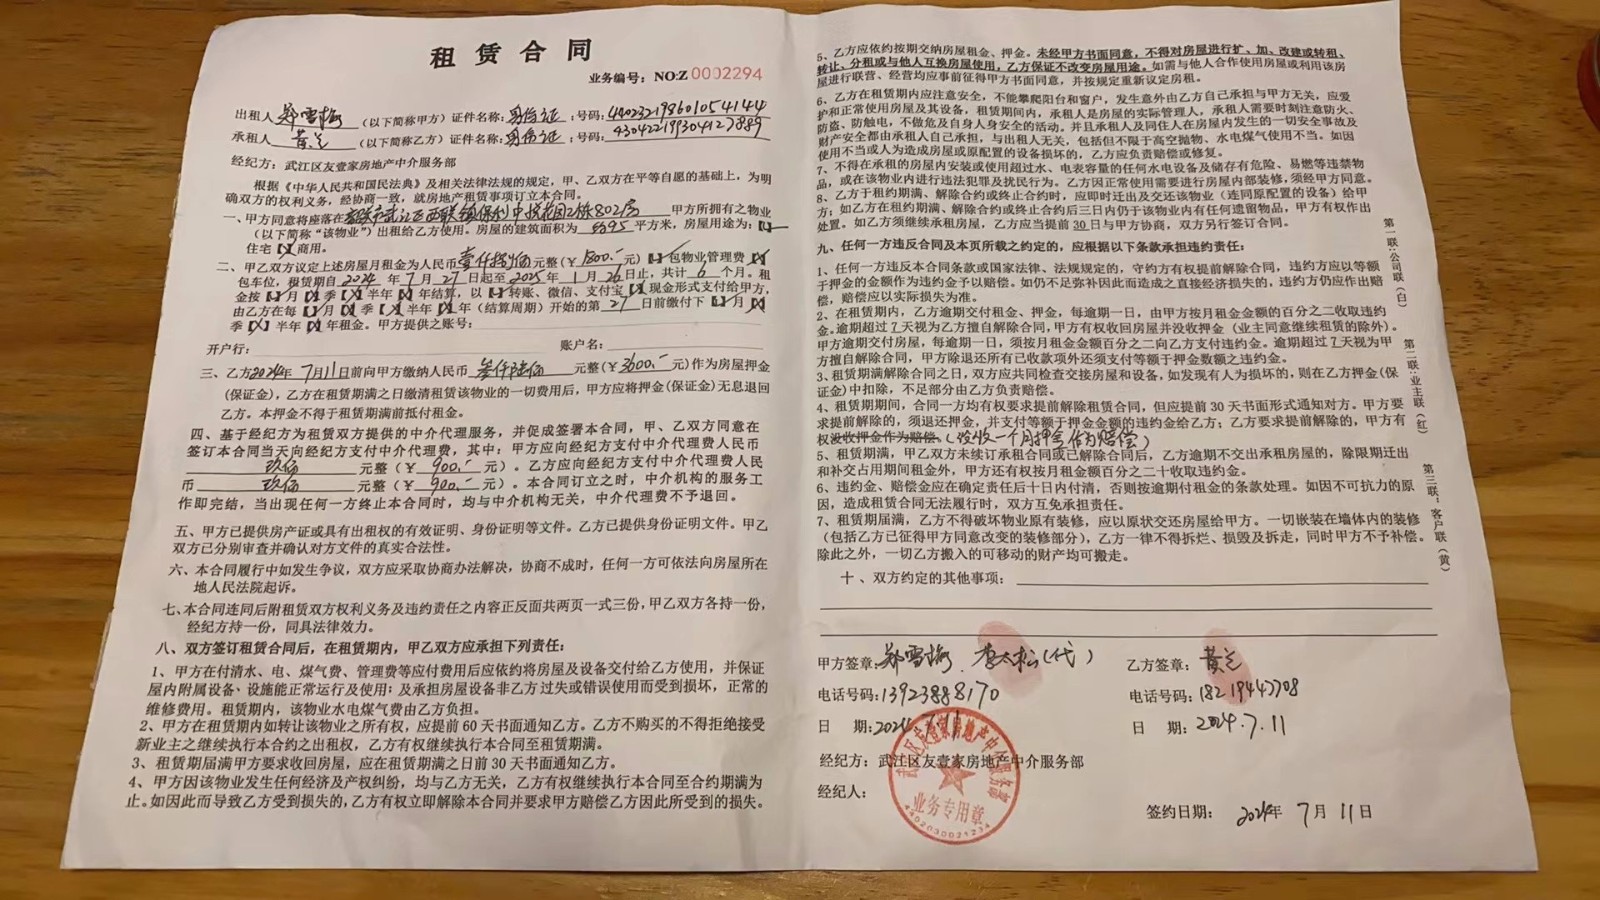 租赁合同
业务编号：NO:Z 0002294
出租人 郑雪梅 （以下简称甲方）证件名称：身份证 ：号码：440232198601054144
承租人 黄兰 （以下简称乙方）证件名称：身份证 ：号码：430422199304127889
经纪方：武江区友壹家房地产中介服务部
根据《中华人民共和国民法典》及相关法律法规的规定，甲、乙双方在平等自愿的基础上，为明
确双方的权利义务，经协商一致，就房地产租赁事项订立本合同。
一、甲方同意将座落在 武江区西联镇保利中悦花园2栋802房 甲方所拥有之物业
（以下简称“该物业”）出租给乙方使用。房屋的建筑面积为 平方米，房屋用途为：【】
住宅【】商用。
二、甲乙双方议定上述房屋月租金为人民币 壹仟捌佰 元整（￥1800.-元）【】包物业管理费【】
包车位，租赁期自2024年7月27日起至2025年1月26日止，共计6个月。租
金按【】月【】季【】半年【】年结算，以【】转账、微信、支付宝【】现金形式支付给甲方，
由乙方在每【】月【】季【】半年【】年（结算周期）开始的第27日前缴付下【】月【】
季【】半年【】年租金。甲方提供之账号：
开户行： 账户名：
三、乙方2024年7月11日前向甲方缴纳人民币 叁仟陆佰 元整（￥3600.-元）作为房屋押金
（保证金），乙方在租赁期满之日缴清租赁该物业的一切费用后，甲方应将押金（保证金）无息退回
乙方。本押金不得于租赁期满前抵付租金。
四、基于经纪方为租赁双方提供的中介代理服务，并促成签署本合同，甲、乙双方同意在
签订本合同当天向经纪方支付中介代理费，其中：甲方应向经纪方支付中介代理费人民币
玖佰 元整（￥900.-元）。乙方应向经纪方支付中介代理费人民
币 玖佰 元整（￥900.-元）。本合同订立之时，中介机构的服务工
作即完结，当出现任何一方终止本合同时，均与中介机构无关，中介代理费不予退回。
五、甲方已提供房产证或具有出租权的有效证明、身份证明等文件。乙方已提供身份证明文件。甲乙
双方已分别审查并确认对方文件的真实合法性。
六、本合同履行中如发生争议，双方应采取协商办法解决，协商不成时，任何一方可依法向房屋所在
地人民法院起诉。
七、本合同连同后附租赁双方权利义务及违约责任之内容正反面共两页一式三份，甲乙双方各持一份，
经纪方持一份，同具法律效力。
八、双方签订租赁合同后，在租赁期内，甲乙双方应承担下列责任：
1、甲方在付清水、电、煤气费、管理费等应付费用后应依约将房屋及设备交付给乙方使用，并保证
屋内附属设备、设施能正常运行及使用；及承担房屋设备非乙方过失或错误使用而受到损坏，正常的
维修费用。租赁期内，该物业水电煤气费由乙方负担。
2、甲方在租赁期内如转让该物业之所有权，应提前60天书面通知乙方。乙方不购买的不得拒绝接受
新业主之继续执行本合约之出租权，乙方有权继续执行本合同至租赁期满。
3、租赁期届满甲方要求收回房屋，应在租赁期满之日前30天书面通知乙方。
4、甲方因该物业发生任何经济及产权纠纷，均与乙方无关，乙方有权继续执行本合同至合约期满为
止。如因此而导致乙方受到损失的，乙方有权立即解除本合同并要求甲方赔偿乙方因此所受到的损失。
5、乙方应依约按期交纳房屋租金、押金。未经甲方书面同意，不得对房屋进行扩、加、改建或转租、
转让、分租或与他人互换房屋使用，乙方保证不改变房屋用途。如需与他人合作使用房屋或利用该房
屋进行联营、经营均应事前征得甲方书面同意，并按规定重新议定房租。
6、乙方在租赁期内应注意安全，不能攀爬阳台和窗户，发生意外由乙方自己承担与甲方无关，应爱
护和正常使用房屋及其设备，租赁期间内，承租人是房屋的实际管理人，承租人需要时刻注意防火、
防盗、防触电，不做危及自身人身安全的活动。并且承租人及同住人在房屋内发生的一切安全事故及
财产安全都由承租人自己承担，与出租人无关，包括但不限于高空抛物、水电煤气使用不当。如因
使用不当或人为造成房屋或原配置的设备损坏的，乙方应负责赔偿或修复。
7、不得在承租的房屋内安装或使用超过水、电表容量的任何水电设备及储存有危险、易燃等违禁物
品，或在该物业内进行违法犯罪及扰民行为。乙方因正常使用需要进行房屋内部装修，须经甲方同意。
8、乙方于租约期满、解除合约或终止合约时，应即时迁出及交还该物业（连同原配置的设备）给甲
方；如乙方在租约期满、解除合约或终止合约后三日内仍于该物业内有任何遗留物品，甲方有权作出
处置。如乙方须继续承租房屋，乙方应当提前30日与甲方协商，双方另行签订合同。
九、任何一方违反合同及本页所载之约定的，应根据以下条款承担违约责任：
1、任何一方违反本合同条款或国家法律、法规规定的，守约方有权提前解除合同，违约方应以等额
于押金的金额作为违约金予以赔偿。如仍不足弥补因此而造成之直接经济损失的，违约方仍应作出赔
偿，赔偿应以实际损失为准。
2、在租赁期内，乙方逾期交付租金、押金，每逾期一日，由甲方按月租金金额的百分之二收取违约
金。逾期超过7天视为乙方擅自解除合同，甲方有权收回房屋并没收押金（业主同意继续租赁的除外）。
甲方逾期交付房屋，每逾期一日，须按月租金金额百分之二向乙方支付违约金。逾期超过7天视为甲
方擅自解除合同，甲方除退还所有已收款项外还须支付等额于押金数额之违约金。
3、租赁期满解除合同之日，双方应共同检查交接房屋和设备，如发现有人为损坏的，则在乙方押金（保
证金）中扣除，不足部分由乙方负责赔偿。
4、租赁期期间，合同一方均有权要求提前解除租赁合同，但应提前30天书面形式通知对方。甲方要
求提前解除的，须退还押金，并支付等额于押金金额的违约金给乙方；乙方要求提前解除的，甲方有
权没收押金作为赔偿。（没收一个月押金作为赔偿）
5、租赁期满，甲乙双方未续订承租合同或已解除合同后，乙方逾期不交出承租房屋的，除限期迁出
和补交占用期间租金外，甲方还有权按月租金额百分之二十收取违约金。
6、违约金、赔偿金应在确定责任后十日内付清，否则按逾期付租金的条款处理。如因不可抗力的原
因，造成租赁合同无法履行时，双方互免承担责任。
7、租赁期届满，乙方不得破坏物业原有装修，应以原状交还房屋给甲方。一切嵌装在墙体内的装修
（包括乙方已征得甲方同意改变的装修部分），乙方一律不得拆烂、损毁及拆走，同时甲方不予补偿。
除此之外，一切乙方搬入的可移动的财产均可搬走。
十、双方约定的其他事项：
甲方签章：郑雪梅、李太松（代） 乙方签章：黄兰
电话号码：13923888170 电话号码：18219447708
日 期：2024.7.11 日 期：2024.7.11
经纪方：武江区友壹家房地产中介服务部
经纪人：
签约日期： 2024年7月11日
武江区友壹家房地产中介服务部
业务专用章
4402030021234
第一联：公司联（白）
第二联：业主联（红）
第三联：客户联（黄）